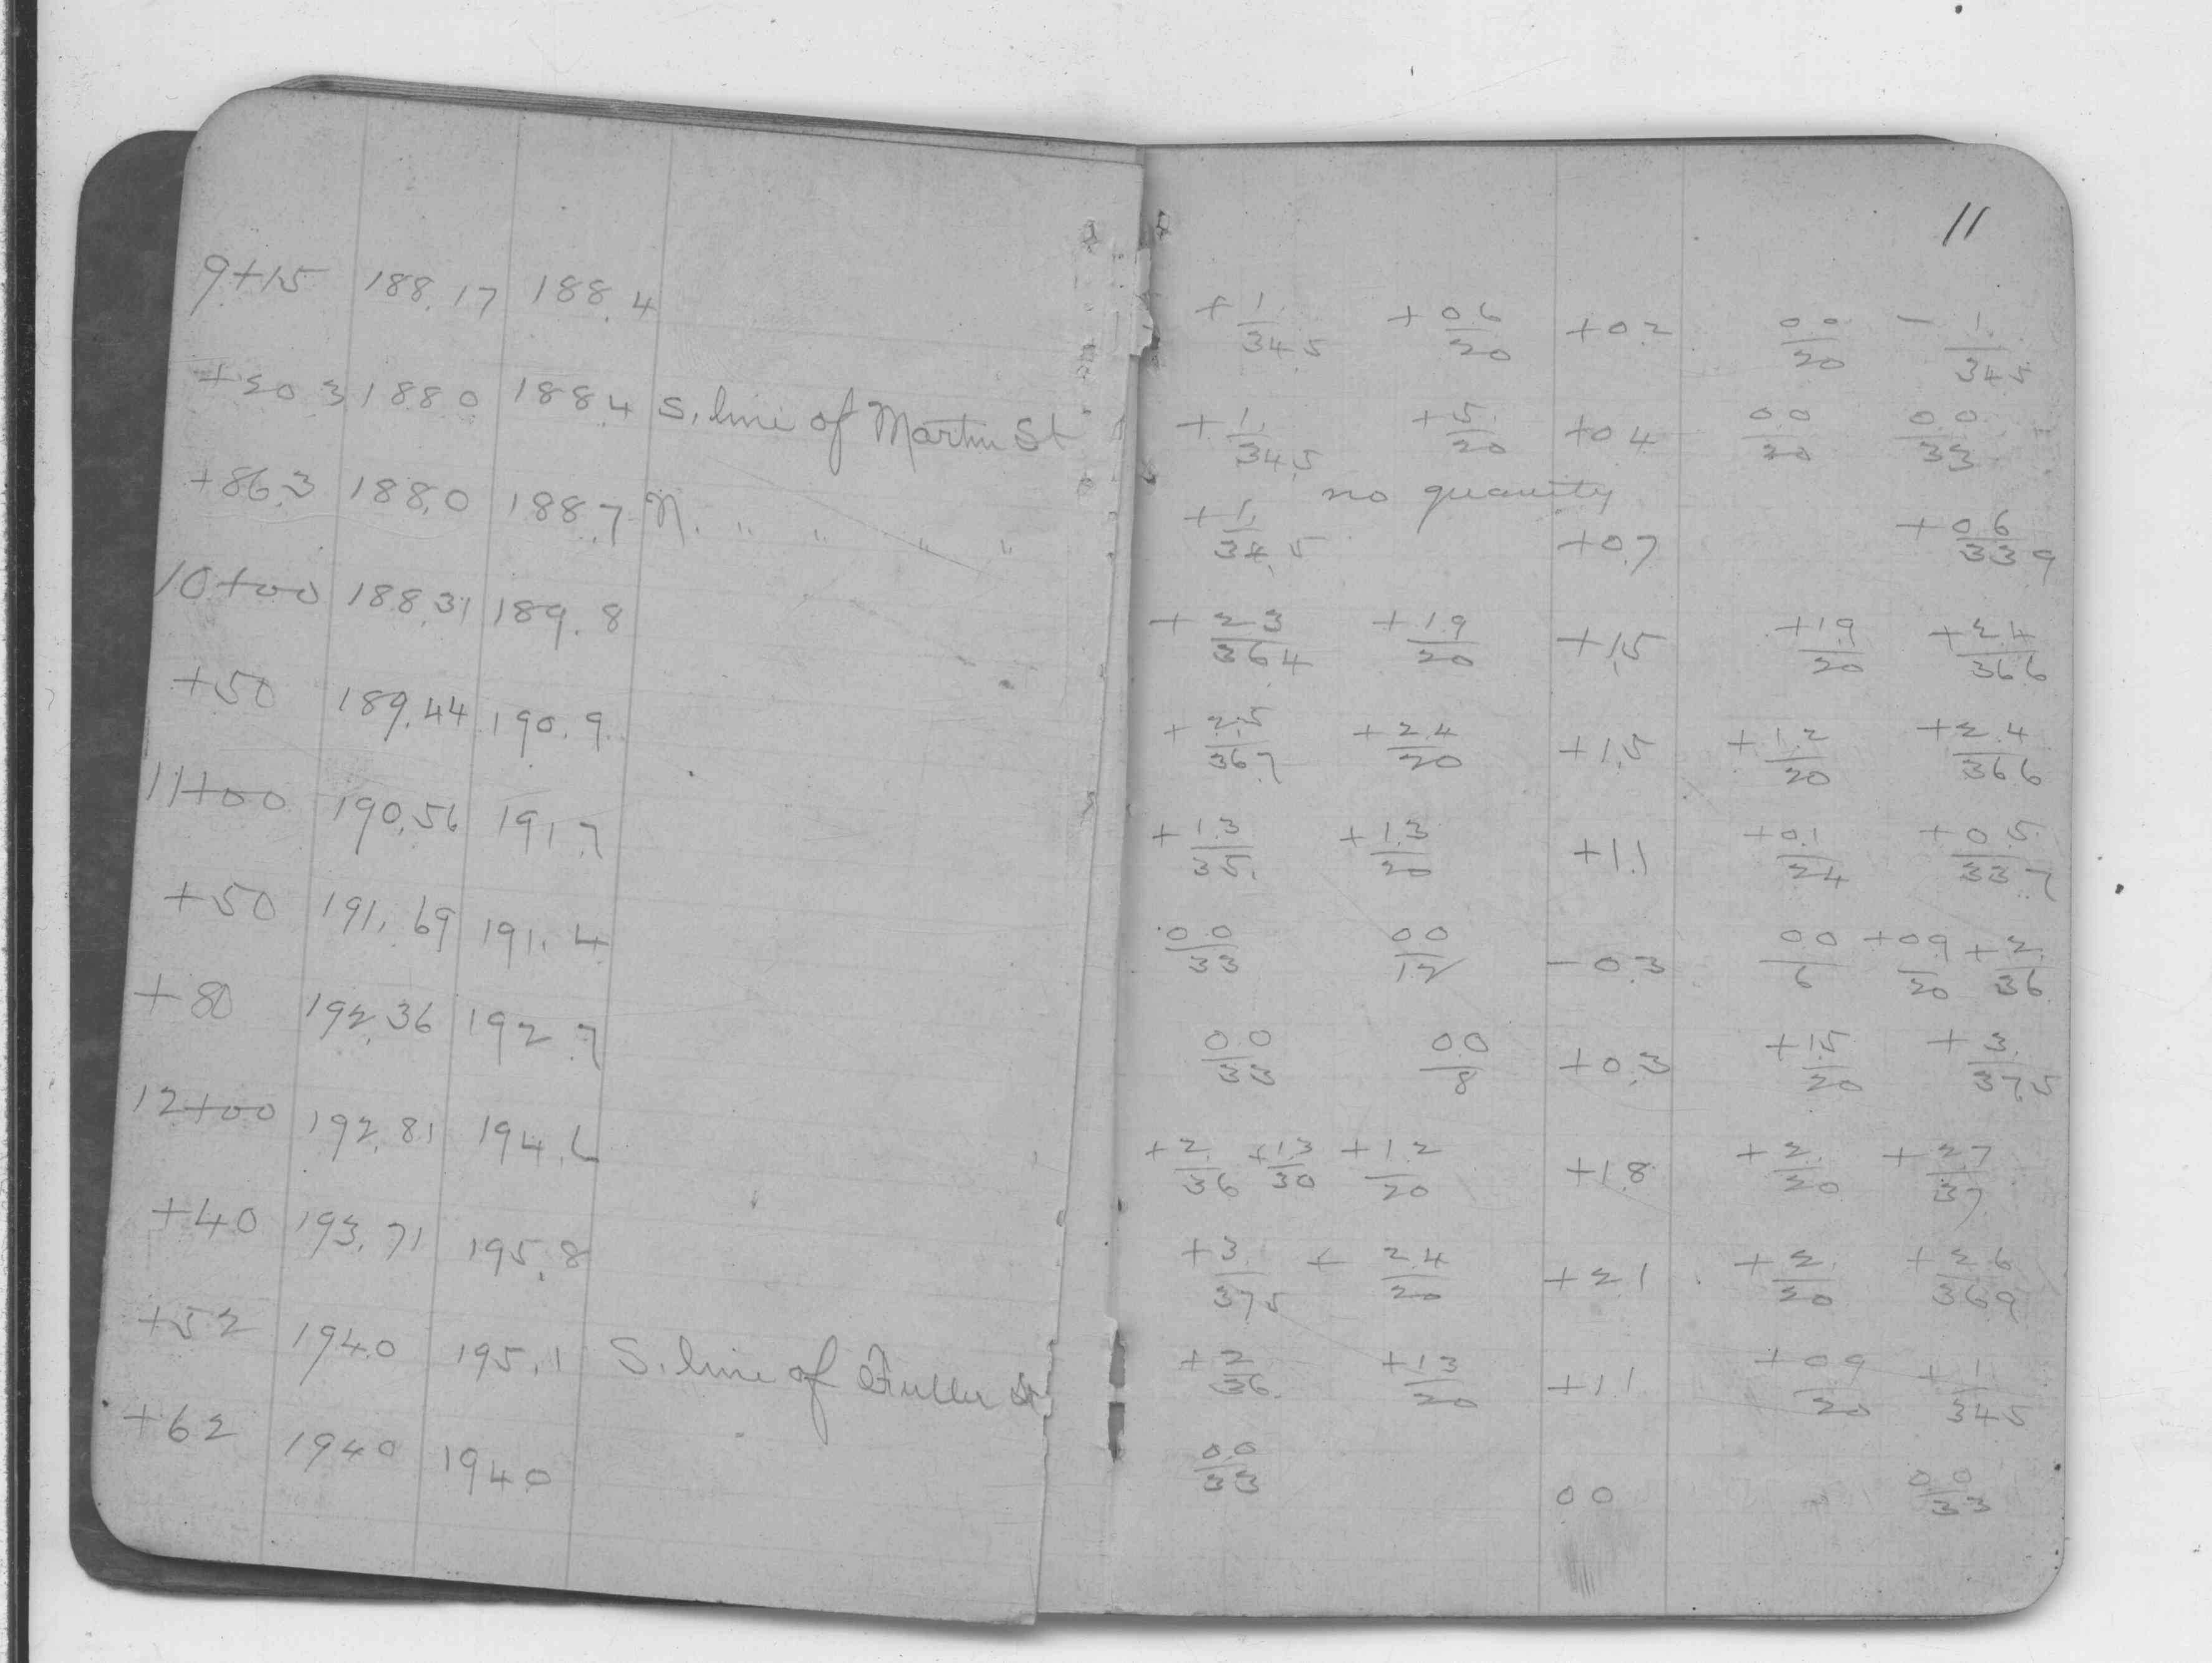 9+15 188.17 188.4
+20.3 188.0 188.4 S. line of Martin St
+86.3 188.0 188.7 N. " " " "
10+00 188.31 189.8
+50 189.44 190.9
11+00 190.56 191.7
+50 191.69 191.4
+80 192.36 192.7
12+00 192.81 194.6
+40 193.71 195.8
+52 194.0 195.1 S. line of Fuller St
+62 194.0 194.0
11
+1./34.5 +0.6/20 +0.2 0.0/20 -1./34.5
+1./34.5 +.5/20 +0.4 0.0/20 0.0/33
no quantity
+1./34.5 +0.7 +0.6/33.9
+2.3/36.4 +1.9/20 +1.5 +1.9/20 +2.4/36.6
+2.5/36.7 +2.4/20 +1.5 +1.2/20 +2.4/36.6
+1.3/35. +1.3/20 +1.1 +0.1/24 +0.5/33.7
0.0/33 0.0/12 -0.3 0.0/6 +0.9/20 +2./36
0.0/33 0.0/8 +0.3 +1.5/20 +3./37.5
+2./36 +1.3/30 +1.2/20 +1.8 +2./20 +2.7/37
+3./37.5 +2.4/20 +2.1 +2./20 +2.6/36.9
+2/36. +1.3/20 +1.1 +0.9/20 +1/34.5
0.0/33 0.0 0.0/33